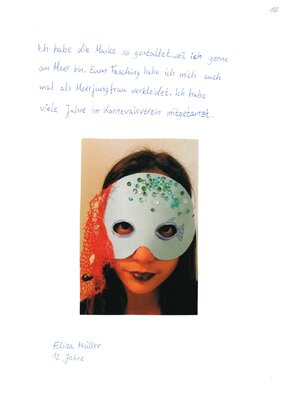 Ich habe die Maske so gestaltet, weil ich gerne
am Meer bin. Zum Fasching habe ich mich auch
mal als Meerjungfrau verkleidet. Ich habe
viele Jahre im Karnevalsverein mitgetanzt.
Elisa Müller
12 Jahre